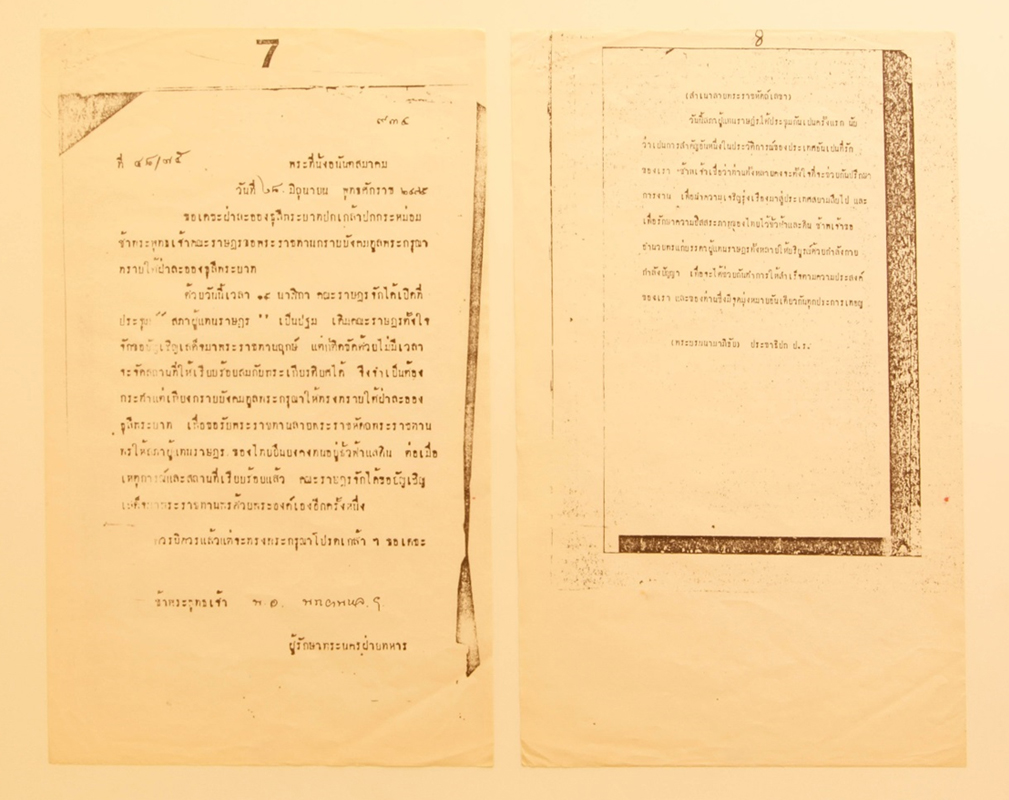 7
๙๓๕
ที่ ๔๘/๗๕ พระที่นั่งอนันตสมาคม
วันที่ ๒๘ มิถุนายน พุทธศักราช ๒๔๗๕
ขอเดชะฝ่าละอองธุลีพระบาทปกเกล้าปกกระหม่อม
ข้าพระพุทธเจ้าคณะราษฎรขอพระราชทานกราบบังคมทูลพระกรุณา
ทราบใต้ฝ่าละอองธุลีพระบาท
ด้วยวันนี้เวลา ๑๔ นาฬิกา คณะราษฎรจักได้เปิดที่
ประชุม " สภาผู้แทนราษฎร " เป็นปฐม เดิมคณะราษฎรตั้งใจ
จักขออัญเชิญเสด็จมาพระราชทานฤกษ์ แต่ก็ติดขัดด้วยไม่มีเวลา
จะจัดสถานที่ให้เรียบร้อยสมกับพระเกียรติยศได้ จึงจำเป็นต้อง
กระทำแต่เพียงกราบบังคมทูลพระกรุณาให้ทรงทราบใต้ฝ่าละออง
ธุลีพระบาท เพื่อขอรับพระราชทานลายพระราชหัตถ์พระราชทาน
พรให้สภาผู้แทนราษฎร ของไทยยืนยงคงทนอยู่ชั่วฟ้าแลดิน ต่อเมื่อ
เหตุการณ์และสถานที่เรียบร้อยแล้ว คณะราษฎรจักได้ขออัญเชิญ
เสด็จมาพระราชทานพรด้วยพระองค์เองอีกครั้งหนึ่ง
ควรมิควรแล้วแต่จะทรงพระกรุณาโปรดเกล้า ฯ ขอเดชะ
ข้าพระพุทธเจ้า พ.อ.
ผู้รักษาพระนครฝ่ายทหาร
8
(สำเนาลายพระราชหัตถ์เลขา)
วันนี้สภาผู้แทนราษฎรได้ประชุมกันเป็นครั้งแรก นับ
ว่าเป็นการสำคัญอันหนึ่งในประวัติการณ์ของประเทศอันเป็นที่รัก
ของเรา ข้าพเจ้าเชื่อว่าท่านทั้งหลายคงจะตั้งใจที่จะช่วยกันปรึกษา
การงาน เพื่อนำความเจริญรุ่งเรืองมาสู่ประเทศสยามสืบไป และ
เพื่อรักษาความอิสสระภาพของไทยไว้ชั่วฟ้าและดิน ข้าพเจ้าขอ
อำนวยพรแก่บรรดาผู้แทนราษฎรทั้งหลายให้บริบูรณ์ด้วยกำลังกาย
กำลังปัญญา เพื่อจะได้ช่วยกันทำการให้สำเร็จตามความประสงค์
ของเรา และของท่านซึ่งมีจุดมุ่งหมายอันเดียวกันทุกประการเทอญ
(พระบรมนามาภิธัย) ประชาธิปก ป.ร.